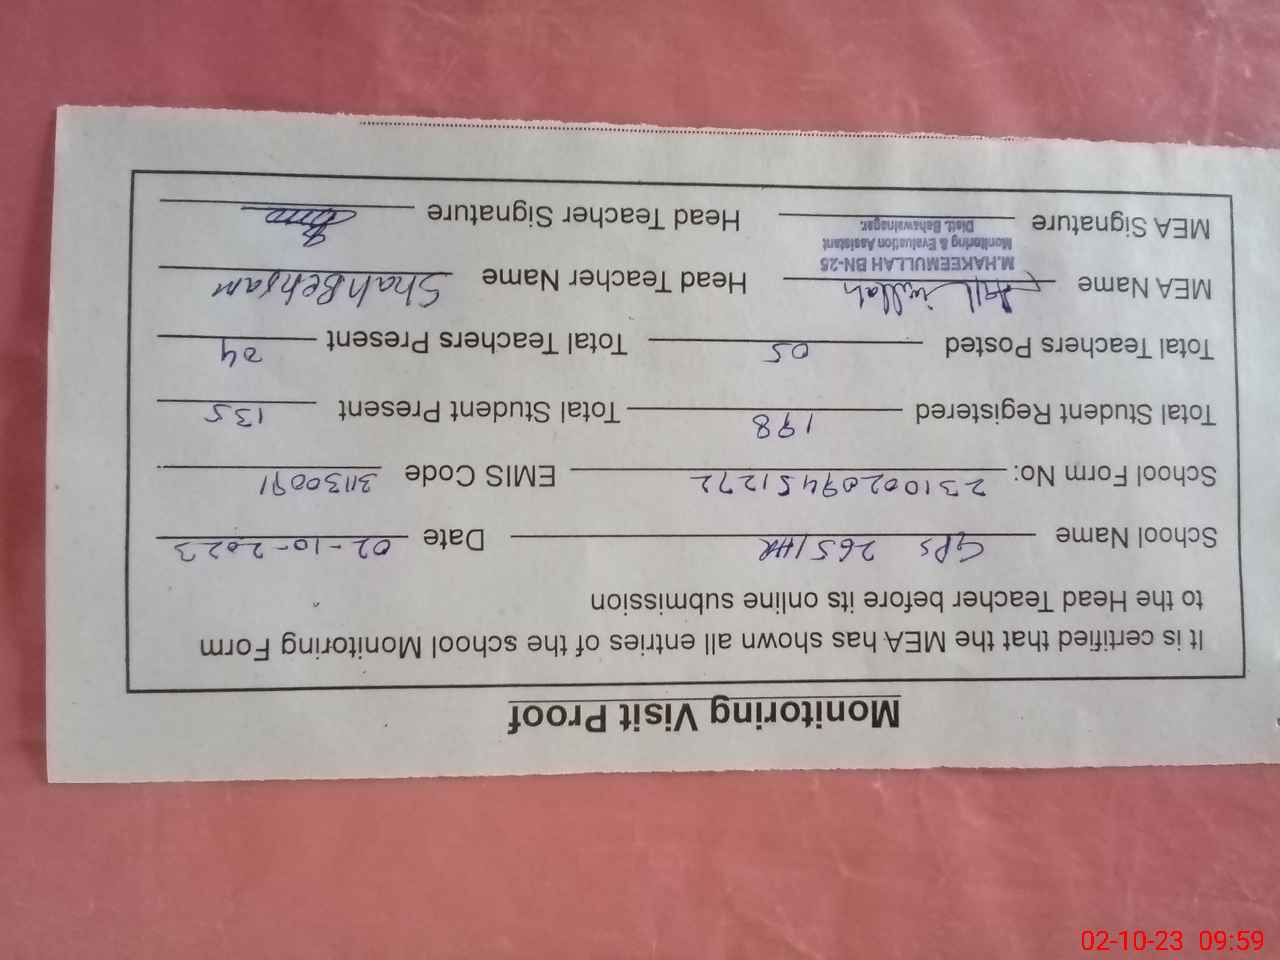 Monitoring Visit Proof
It is certified that the MEA has shown all entries of the school Monitoring Form
to the Head Teacher before its online submission
School Name GPS 265/HR Date 02-10-2023
School Form No: 23100209451272 EMIS Code 31130091
Total Student Registered 198 Total Student Present 135
Total Teachers Posted 05 Total Teachers Present 04
MEA Name Head Teacher Name Shah Behram
M.HAKEEMULLAH BN-25
Monitoring & Evaluation Assistant
Distt. Bahawalnagar.
MEA Signature Head Teacher Signature
02-10-23 09:59